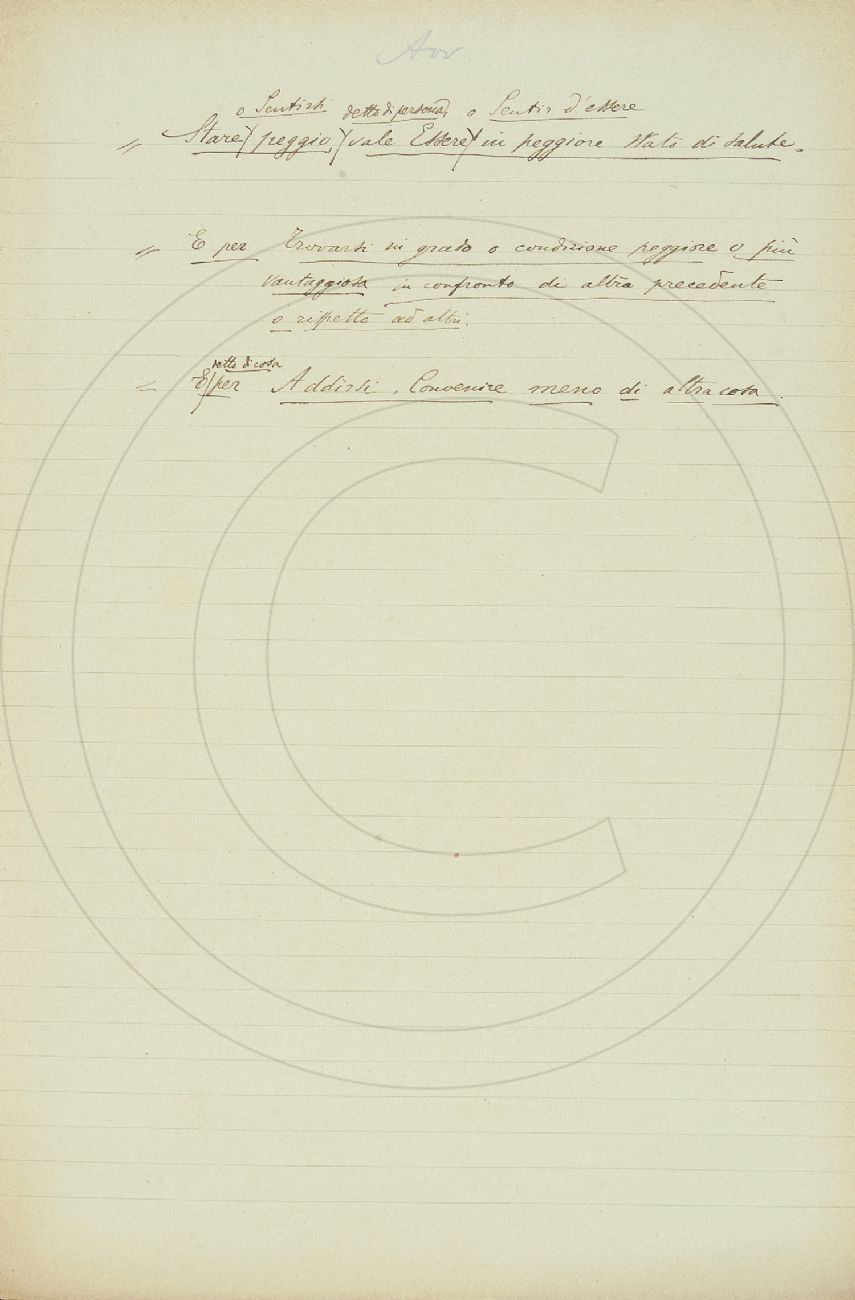 Avv
o Sentirsi detto di persona, o Sentir d'essere
" Stare peggio, vale Essere in peggiore stato di salute.
" E per Trovarsi in grado o condizione peggiore o più
vantaggiosa in confronto di altra precedente
o rispetto ad altri.
detto di cosa
= E per Addirsi, Convenire meno di altra cosa.